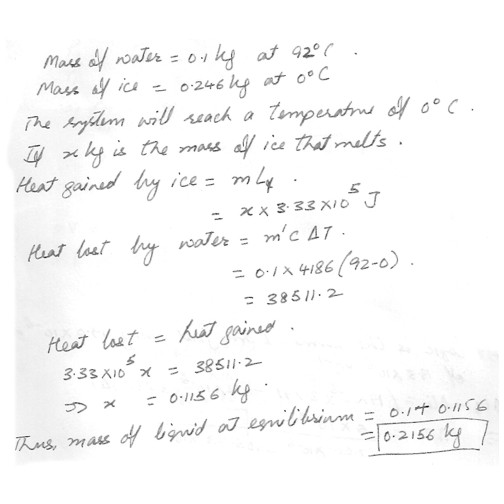 Mass of water = 0.1 kg at 92°C.
Mass of ice = 0.246 kg at 0°C
The system will reach a temperature of 0°C.
If x kg is the mass of ice that melts.
Heat gained by ice = mLf.
= x × 3.33 × 10^5 J
Heat lost by water = m'CΔT.
= 0.1 × 4186 (92-0).
= 38511.2
Heat lost = heat gained.
3.33 × 10^5 x = 38511.2
⇒ x = 0.1156 kg.
Thus, mass of liquid at equilibrium = 0.1 + 0.1156
= 0.2156 kg